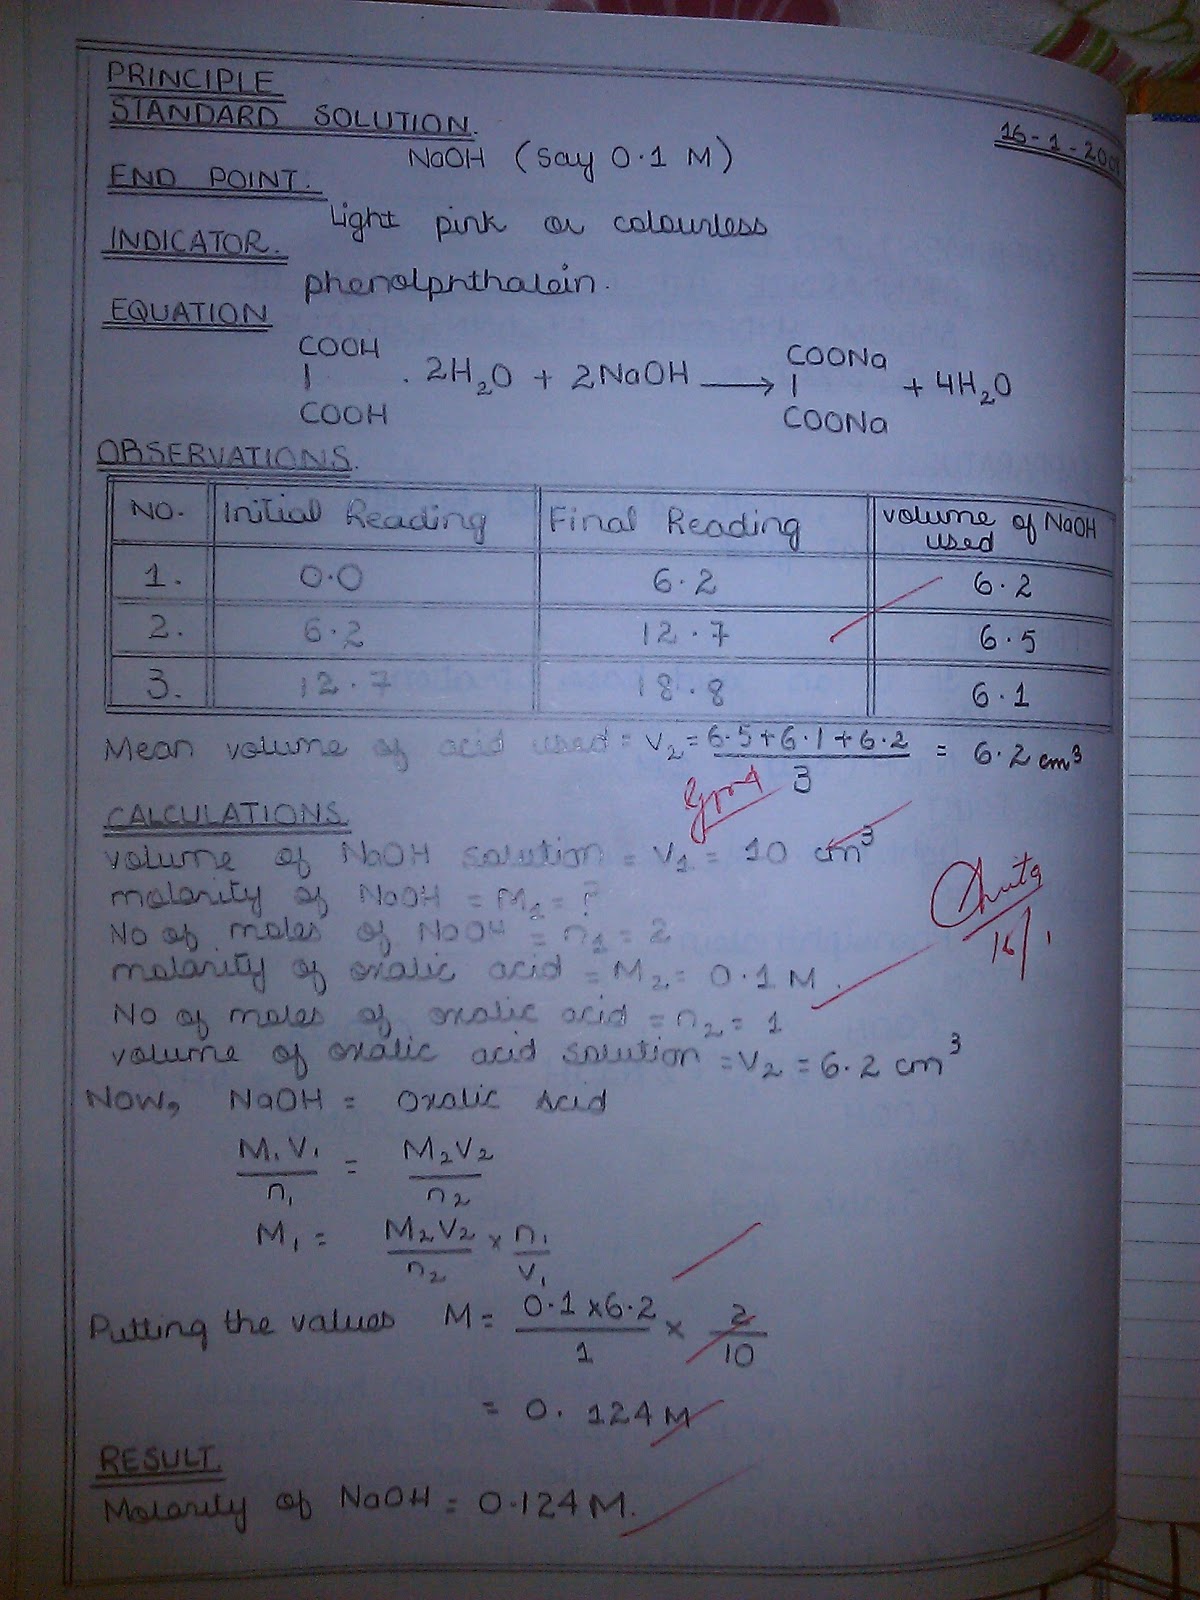 PRINCIPLE
STANDARD SOLUTION.
16-1-200
NaOH (say 0.1 M)
END POINT.
Light pink or colourless
INDICATOR.
phenolphthalein.
EQUATION
COOH COONa
| . 2H₂O + 2NaOH ⟶ | + 4H₂O
COOH COONa
OBSERVATIONS.
NO. Initial Reading Final Reading volume of NaOH used
1. 0.0 6.2 6.2
2. 6.2 12.7 6.5
3. 12.7 18.8 6.1
Mean volume of acid used = V₂ = 6.5+6.1+6.2/3 = 6.2 cm³
CALCULATIONS.
volume of NaOH solution = V₁ = 10 cm³
molarity of NaOH = M₁ = ?
No of moles of NaOH = n₁ = 2
molarity of oxalic acid = M₂ = 0.1 M.
16/1
No of moles of oxalic acid = n₂ = 1
volume of oxalic acid solution = V₂ = 6.2 cm³
Now, NaOH = Oxalic Acid
M₁V₁/n₁ = M₂V₂/n₂
M₁ = M₂V₂/n₂ × n₁/V₁
Putting the values M = 0.1×6.2/1 × 2/10
= 0.124 M
RESULT.
Molarity of NaOH = 0.124 M.